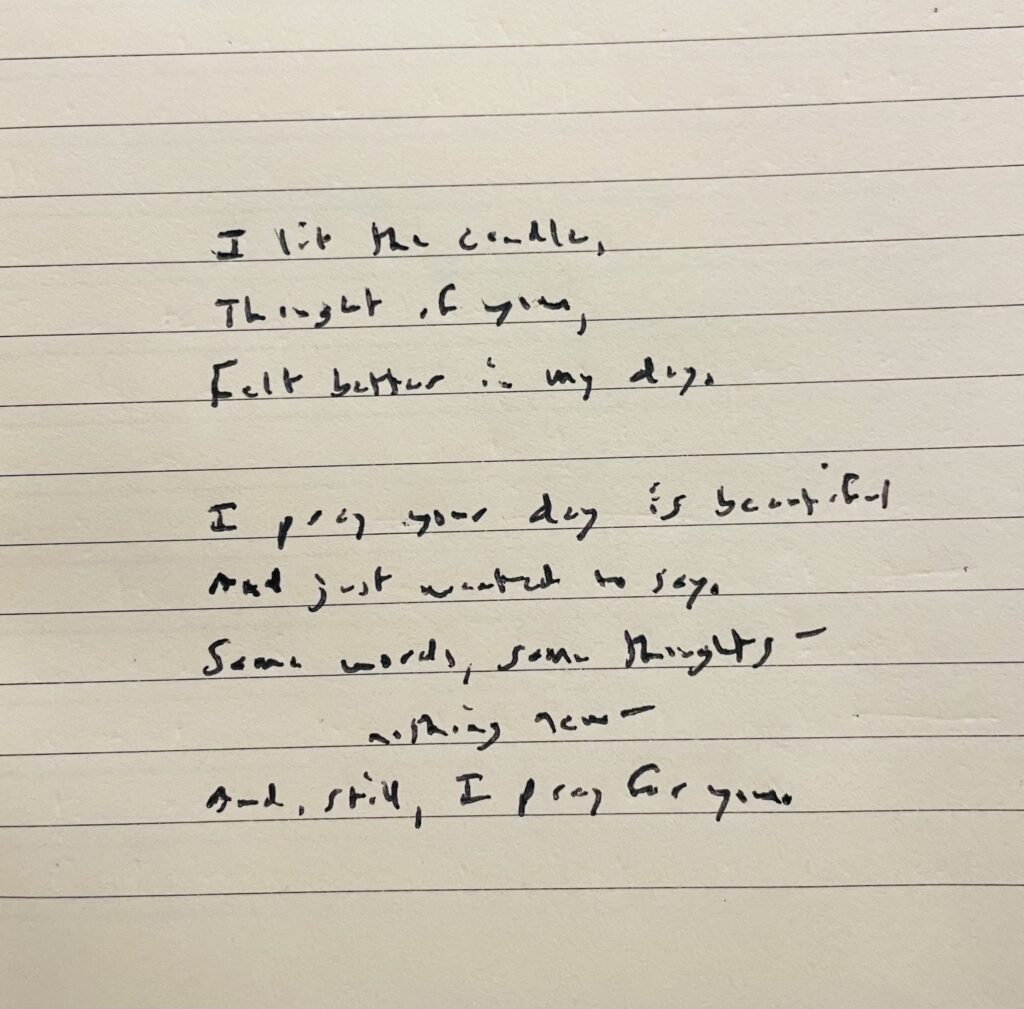 I lit the candle,
Thought of you,
Felt better in my day.
I pray your day is beautiful
And just wanted to say.
Some words, some thoughts –
nothing new –
And, still, I pray for you.